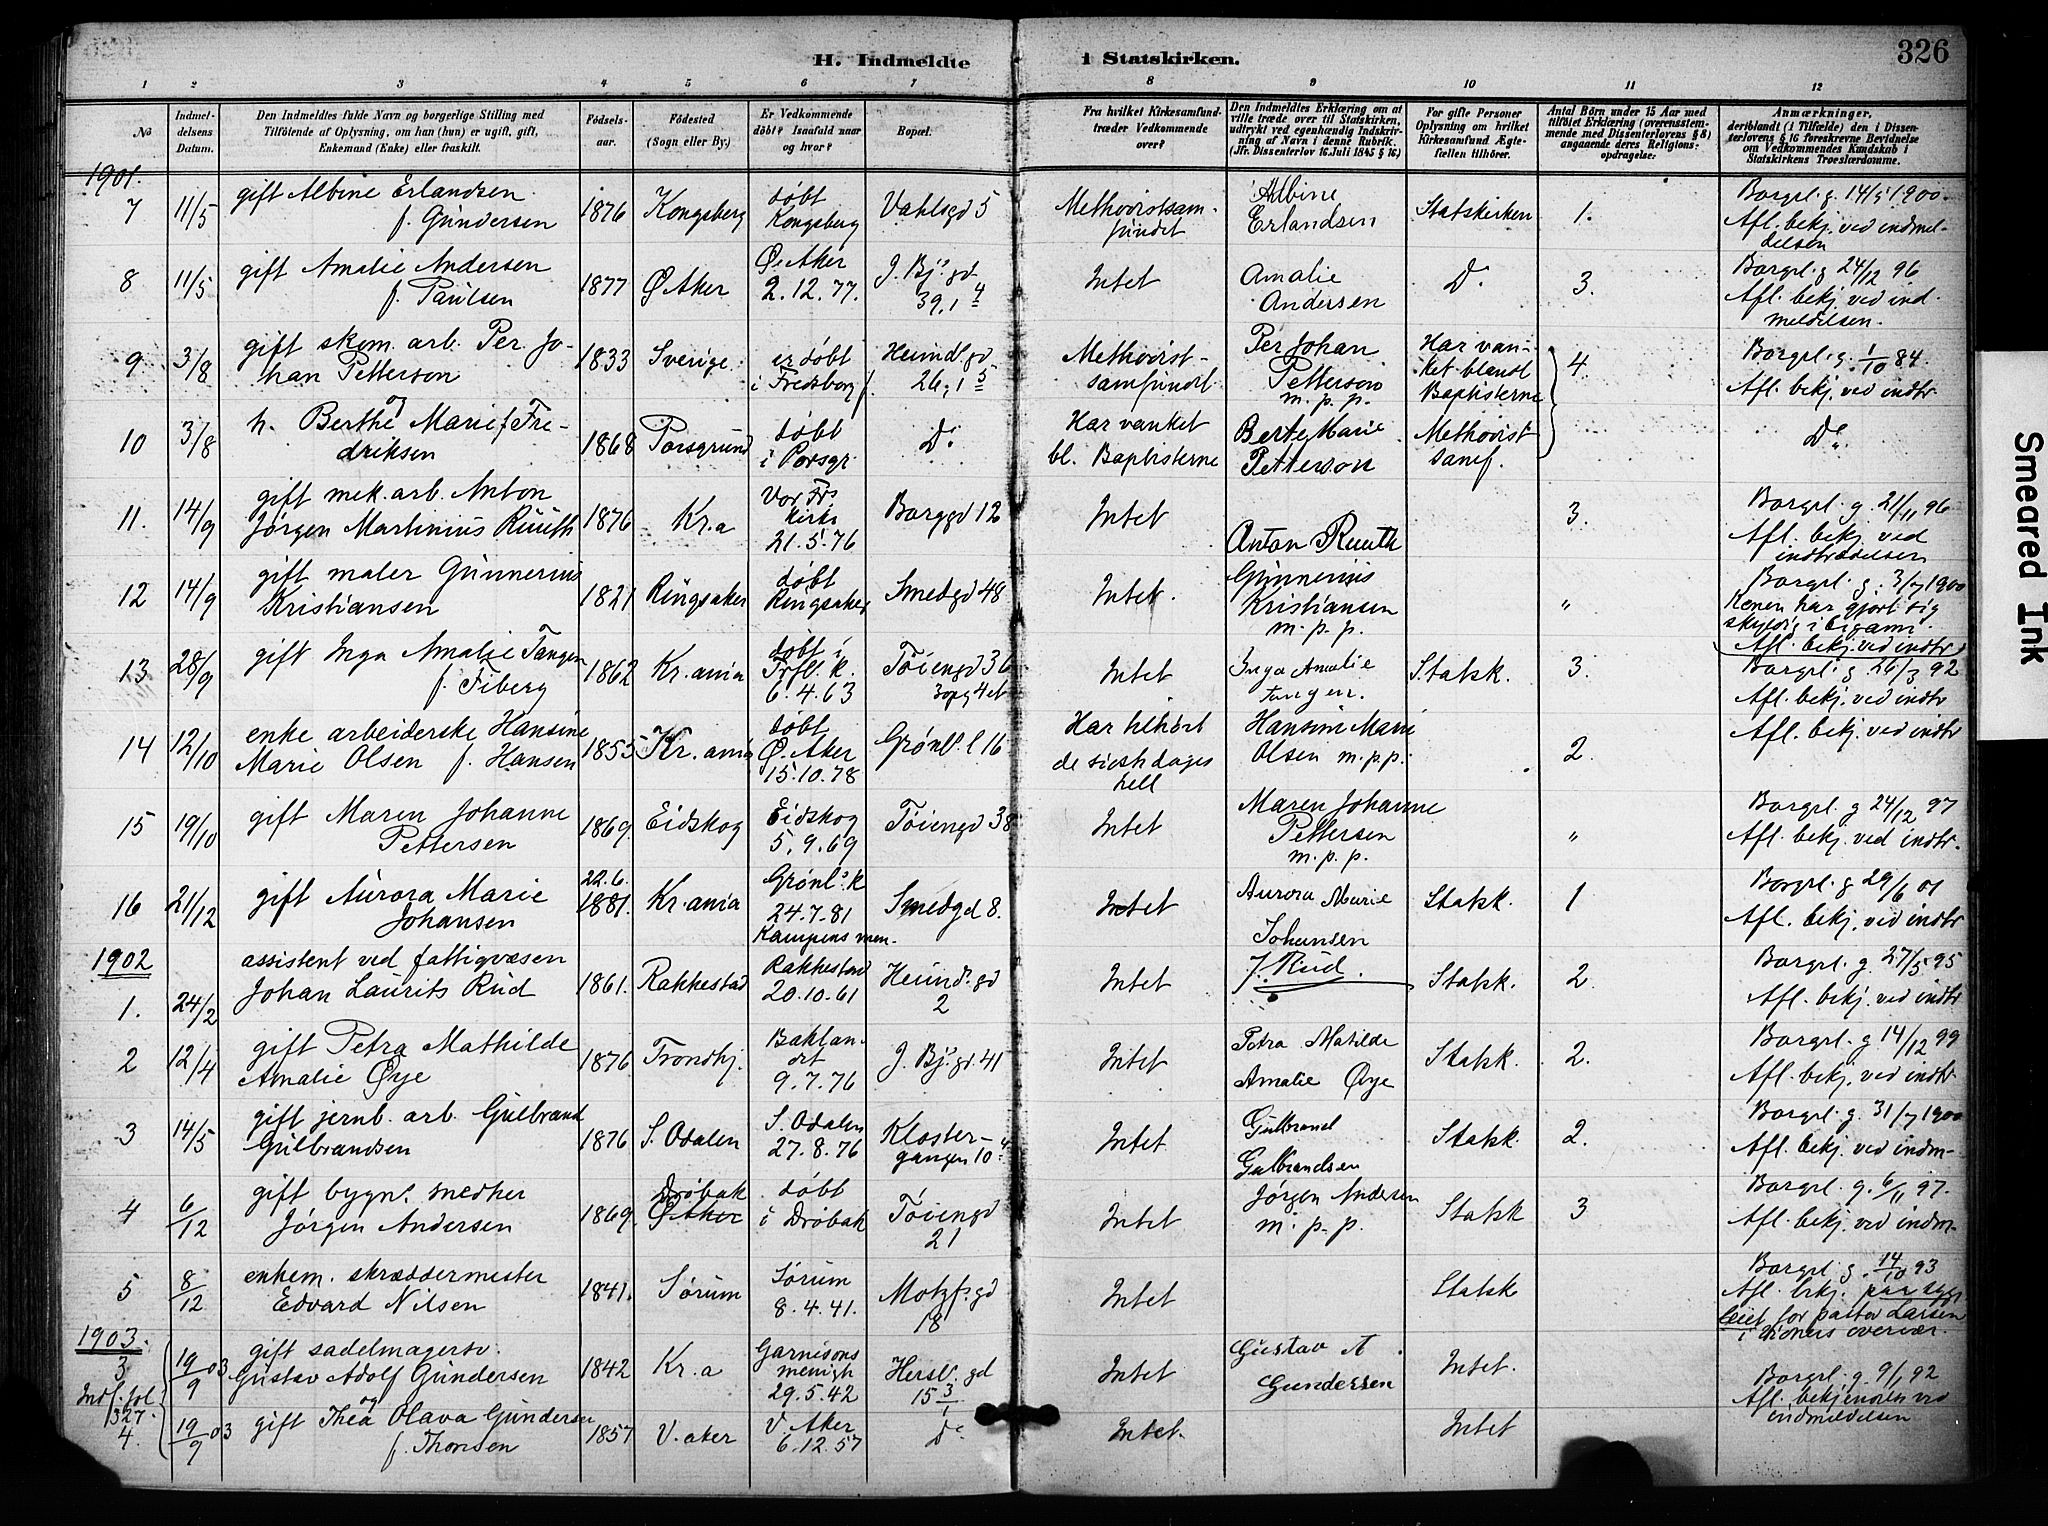 326
H. Indmeldte i Statskirken.
1 2 3 4 5 6 7 8 9 10 11 12
No
Indmeldelsens Datum.
Den Indmeldtes fulde Navn og borgerlige Stilling med
Tilföiende af Oplysning, om han (hun) er ugift, gift,
Enkemand (Enke) eller fraskilt.
Födselsaar.
Födested
(Sogn eller By.)
Er Vedkommende
döbt? Isaafald naar
og hvor?
Bopæl.
Fra hvilket Kirkesamfund
træder Vedkommende
over?
Den Indmeldtes Erklæring om at
ville træde over til Statskirken,
udtrykt ved egenhændig Indskrivning
af Navn i denne Rubrik.
(Jfr. Dissenterlov 16. Juli 1845 § 16.)
For gifte Personer
Oplysning om hvilket
Kirkesamfund Ægtefællen
tilhörer.
Antal Börn under 15 Aar med
tilföiet Erklæring (overensstemmende
med Dissenterlovens § 8)
angaaende deres Religionsopdragelse:
Anmærkninger,
deriblandt (i Tilfælde) den i Dissenterlovens
§ 16 foreskrevne Bevidnelse
om Vedkommendes Kundskab i
Statskirkens Troeslærdomme.
1901.
7 11/5 gift Albine Erlandsen f. Gundersen 1876 Kongsberg døbt Kongsberg Vahlsgd 5 Methodistsamfundet Albine Erlandsen Statskirken 1. Borgrl. g. 14/5 1900. Afl. bekj. ved indmeldelsen
8 11/5 gift Amalie Andersen f. Paulsen 1877 Ø. Aker Ø. Aker 2.12.77. J. Bj.s gd 39, 1 4 Intet Amalie Andersen Do 3. Borgrl. g 24/12 96 Afl. bekj. ved indmeldelsen.
9 3/8 gift skom. arb. Per Johan Petterson 1833 Sverige er døbt i Fredsborg f. Heimdl.gd 26, 1 5 Methodistsamfundet Per Johan Petterson m.p.p. Har vanket blandt Baptisterne 4. Borgrl. g. 1/10 84. Afl. bekj. ved indtr.
og
10 3/8 h. Berthe Marie f. Fredriksen 1868 Porsgrund døbt i Porsgr. Do Har vanket bl. Baptisterne Berte Marie Petterson Methodist samf. Do
11. 14/9 gift mek. arb. Anton Jørgen Martinius Ruuth 1876 Kr.a Vor Frs kirke 21.5.76 Borggd 12 Intet Anton Ruuth 3. Borgrl. g. 21/11 96 Afl. bekj. ved indtrædelsen
12 14/9 gift maler Gunnerius Kristiansen 1821 Ringsaker døbt Ringsaker Smedgd 48 Intet. Gunnerius Kristiansen m.p.p. " Borgrl. g. 3/7 1900 Konen har gjort sig skyldig i bigami. Afl. bekj. ved indtr.
13 28/9 gift Inga Amalie Tangen f. Fiberg 1862 Kr.ania døbt i Trfl. k. 6.4.63 Tøiengd 36 3 opg 4 et Intet Inga Amalie Tangen. Statsk. 3. Borgrl. g 26/3 92 Afl. bekj. ved indtr
14 12/10 enke arbeiderske Hansine Marie Olsen f. Hansen 1853 Kr.ania døbt Ø. Aker 15.10.78 Grønl.l 16 Har tilhørt de sidsh dages hell Hansine Marie Olsen m.p.p. 2. Afl. bekj. ved indtr
15 19/10 gift Maren Johanne Pettersen 1869. Eidskog Eidskog 5.9.69 Tøiengd 38 Intet Maren Johanne Pettersen m.p.p. " Borgrl. g 24/12 97 Afl. bekj. ved indtr.
16 21/12 gift Aurora Marie Johansen 22.6. 1881. Kr.ania Grønl.s k 24.7.81 Kampens men. Smedgd 8. Intet Aurora Marie Johansen Statsk. 1 Borgrl. g 29/6 01 Afl. bekj. ved indtr
1902
1. 24/2 assistent ved fattigvæsen Johan Laurits Rud 1861. Rakkestad Rakkestad 20.10.61 Heimd.gd 2 Intet J. Rud. Statsk. 2. Borgrl. g. 27/5 95 Afl. bekj. ved indtr
2 12/4 gift Petra Mathilde Amalie Øye 1876 Trondhj. Baklandet 9.7.76 J. Bj.s gd 41 Intet Petra Matilde Amalie Øye Statsk. 2. Borgrl. g. 14/12 99 Afl. bekj. ved indtr
3 14/5 gift jernb. arb. Gulbrand Gulbrandsen 1876 S. Odalen S. Odalen 27.8.76 Klostergangen 10 4 Intet Gulbrand Gulbrandsen Statsk. 2. Borgrl. g. 31/7 1900 Afl. bekj. ved indm-
4 6/12 gift bygn. snedker Jørgen Andersen 1869. Drøbak Ø Aker døbt i Drøbak Tøiengd 21 Intet Jørgen Andersen m.p.p. Statsk 3 Borgrl. g. 6/11 97. Afl. bekj. ved indm-
5 8/12 enkem. skræddermester Edvard Nilsen 1841. Sørum Sørum 8.4.41. Motzfs.gd 18 Intet Statsk Borgrl. g. 14/10 93 Afl. bekj. paa syge leiet for pastor Larsen i vidners overvær.
1903.
3 19/9 03 gift sadelmagersv. Gustav Adolf Gundersen 1842 Kr.a Garnisons menigh 29.5.42 Hersl. gd 15 3/1 Intet Gustav A Gundersen Intet. Borgrl. g. 9/1 92 Afl. bekjendes ved indmeldelsen
Indf. fol 327. og
4. 19/9 03 gift Thea Olava Gundersen f. Thorsen 1857 V. aker V. Aker 6.12.57 Do Intet. Intet
Smeared Ink